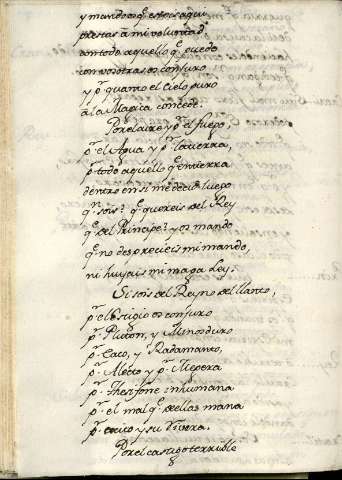 y mando q̃ esteis aqui
prestas à mi voluntad
con todo aquello q̃ puedo
con vosotras os conjuro
y p.r quanto el Cielo puro
a la Magica concede.
Por el aire y p.r el fuego,
p.r el Agua y p.r la tierra,
p.r todo aquello q̃ encierra
dentro en si me decid luego
q.n sois? q̃ quereis del Rey
q̃ del Principe? y os mando
q̃ no desprecieis mi mando,
ni huyais mi maga Ley.
Si sois del Reyno del llanto,
p.r el Estigio os conjuro
p.r Pluton, y Minos duro
p.r Eaco, y Radamanto,
p.r Alecto y p.r Megera
p.r Thesifone inhumana
p.r el mal q̃ dellas mana
p.r y su
Por el castigo terrible